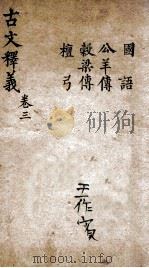 國語
公羊傳
穀梁傳
檀弓
古文釋義 卷三
王作賓